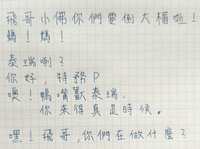 飛哥小佛你們要倒大楣啦！
媽！媽！
泰瑞咧？
你好，特務P
噢！鴨嘴獸泰瑞，
你來得真是時候。
嘿！飛哥，你們在做什麼？